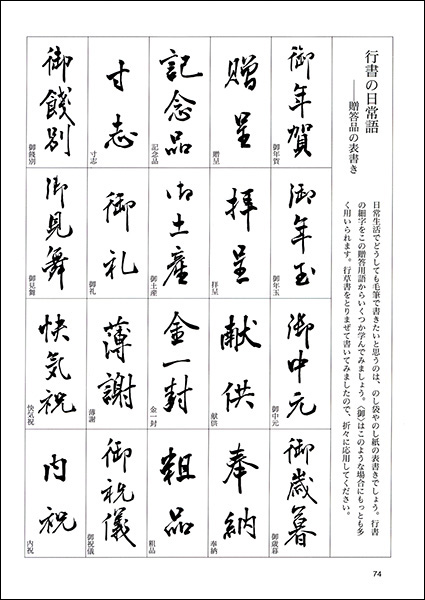 行書の日常語
――贈答品の表書き
日常生活でどうしても毛筆で書きたいと思うのは、のし袋やのし紙の表書きでしょう。行書
の細字をこの贈答用語からいくつか学んでみましょう。〈御〉はこのような場合にもっとも多
く用いられます。行草書をとりまぜて書いてみましたので、折々に応用してください。
御年賀
御年賀
御年玉
御年玉
御中元
御中元
御歳暮
御歳暮
贈呈
贈呈
拝呈
拝呈
献供
献供
奉納
奉納
記念品
記念品
御土産
御土産
金一封
金一封
粗品
粗品
寸志
寸志
御礼
御礼
薄謝
薄謝
御祝儀
御祝儀
御餞別
御餞別
御見舞
御見舞
快気祝
快気祝
内祝
内祝
74